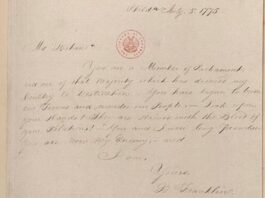 Philada July 5. 1775
Mr Strahan
You are a Member of Parliament,
and one of that Majority which has doomed my
Country to Destruction. You have begun to burn
our Towns and murder our People. — Look upon
your Hands! They are stained with the Blood of
your Relations! You and I were long Friends:
You are now my Enemy, and
I am,
Yours,
B. Franklin